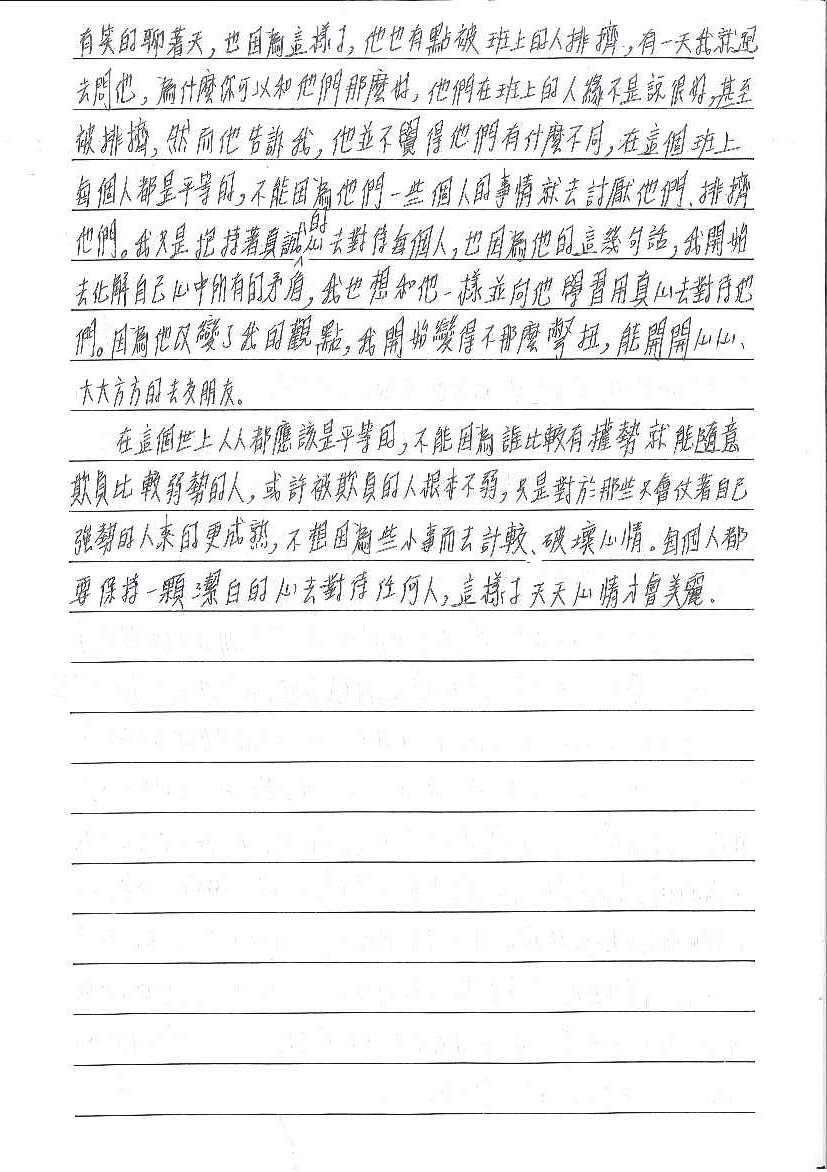 有笑的聊著天，也因為這樣子，他也有點被班上的人排擠，有一天我就跑
去問他，為什麼你可以和他們那麼好，他們在班上的人緣不是說很好，甚至
被排擠，然而他告訴我，他並不覺得他們有什麼不同，在這個班上
每個人都是平等的，不能因為他們一些個人的事情就去討厭他們、排擠
他們。我只是抱持著真誠的心去對待每個人，也因為他的這幾句話，我開始
去化解自己心中所有的矛盾，我也想和他一樣並向他學習用真心去對待他
們。因為他改變了我的觀點，我開始變得不那麼彆扭，能開開心心、
大大方方的去交朋友。
在這個世上人人都應該是平等的，不能因為誰比較有權勢就能隨意
欺負比較弱勢的人，或許被欺負的人根本不弱，只是對於那些只會仗著自己
強勢的人來的更成熟，不想因為些小事而去計較、破壞心情。每個人都
要保持一顆潔白的心去對待任何人，這樣子天天心情才會美麗．